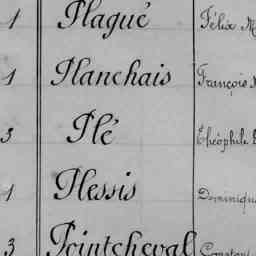 1 Plagué Félix M
1 Planchais François
3 Plé Théophile
1 Plessis Dominique
3 Pointcheval Constant